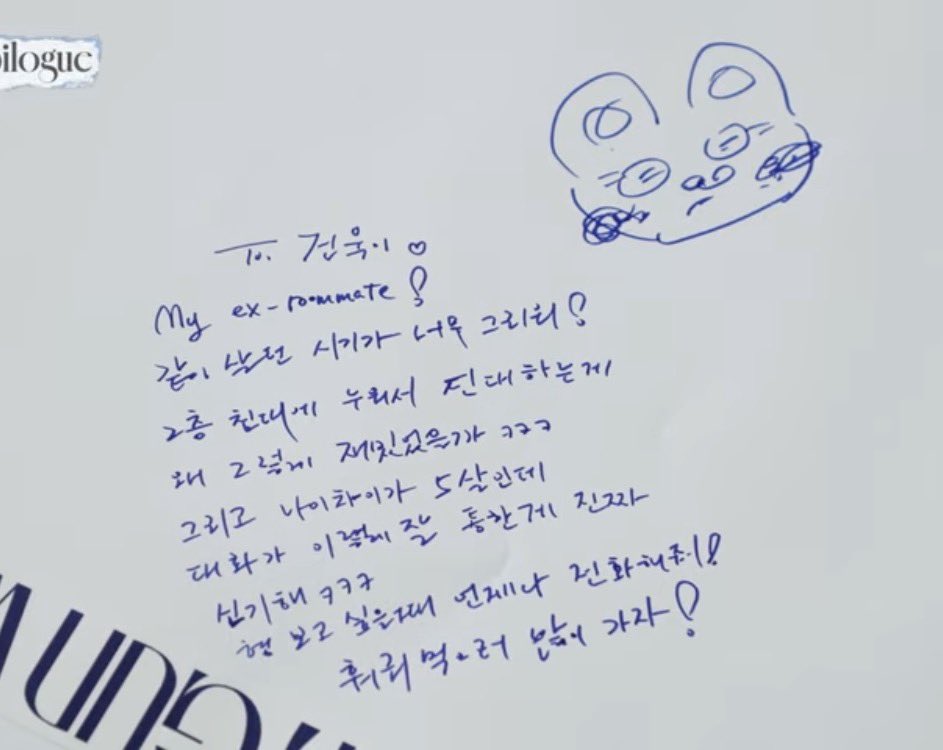 pilogue
To. 건욱이 ♡
My ex-roommate!
같이 살던 시기가 너무 그리워!
2층 침대에 누워서 진대하는게
왜 그렇게 재밌었을까 ㅋㅋㅋ
그리고 나이차이가 5살인데
대화가 이렇게 잘 통한게 진짜
신기해 ㅋㅋㅋ
형 보고 싶을때 언제나 전화해줘!
훠궈 먹으러 많이 가자!